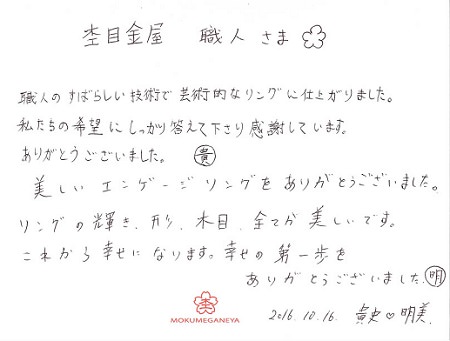 杢目金屋 職人さま
職人のすばらしい技術で芸術的なリングに仕上がりました。
私たちの希望にしっかり答えて下さり感謝しています。
ありがとうございました。 貴
美しいエンゲージリングをありがとうございました。
リングの輝き、形、木目、全てが美しいです。
これから幸せになります。幸せの第一歩を
ありがとうございました。明
MOKUMEGANEYA
2016.10.16. 貴史♡明美.